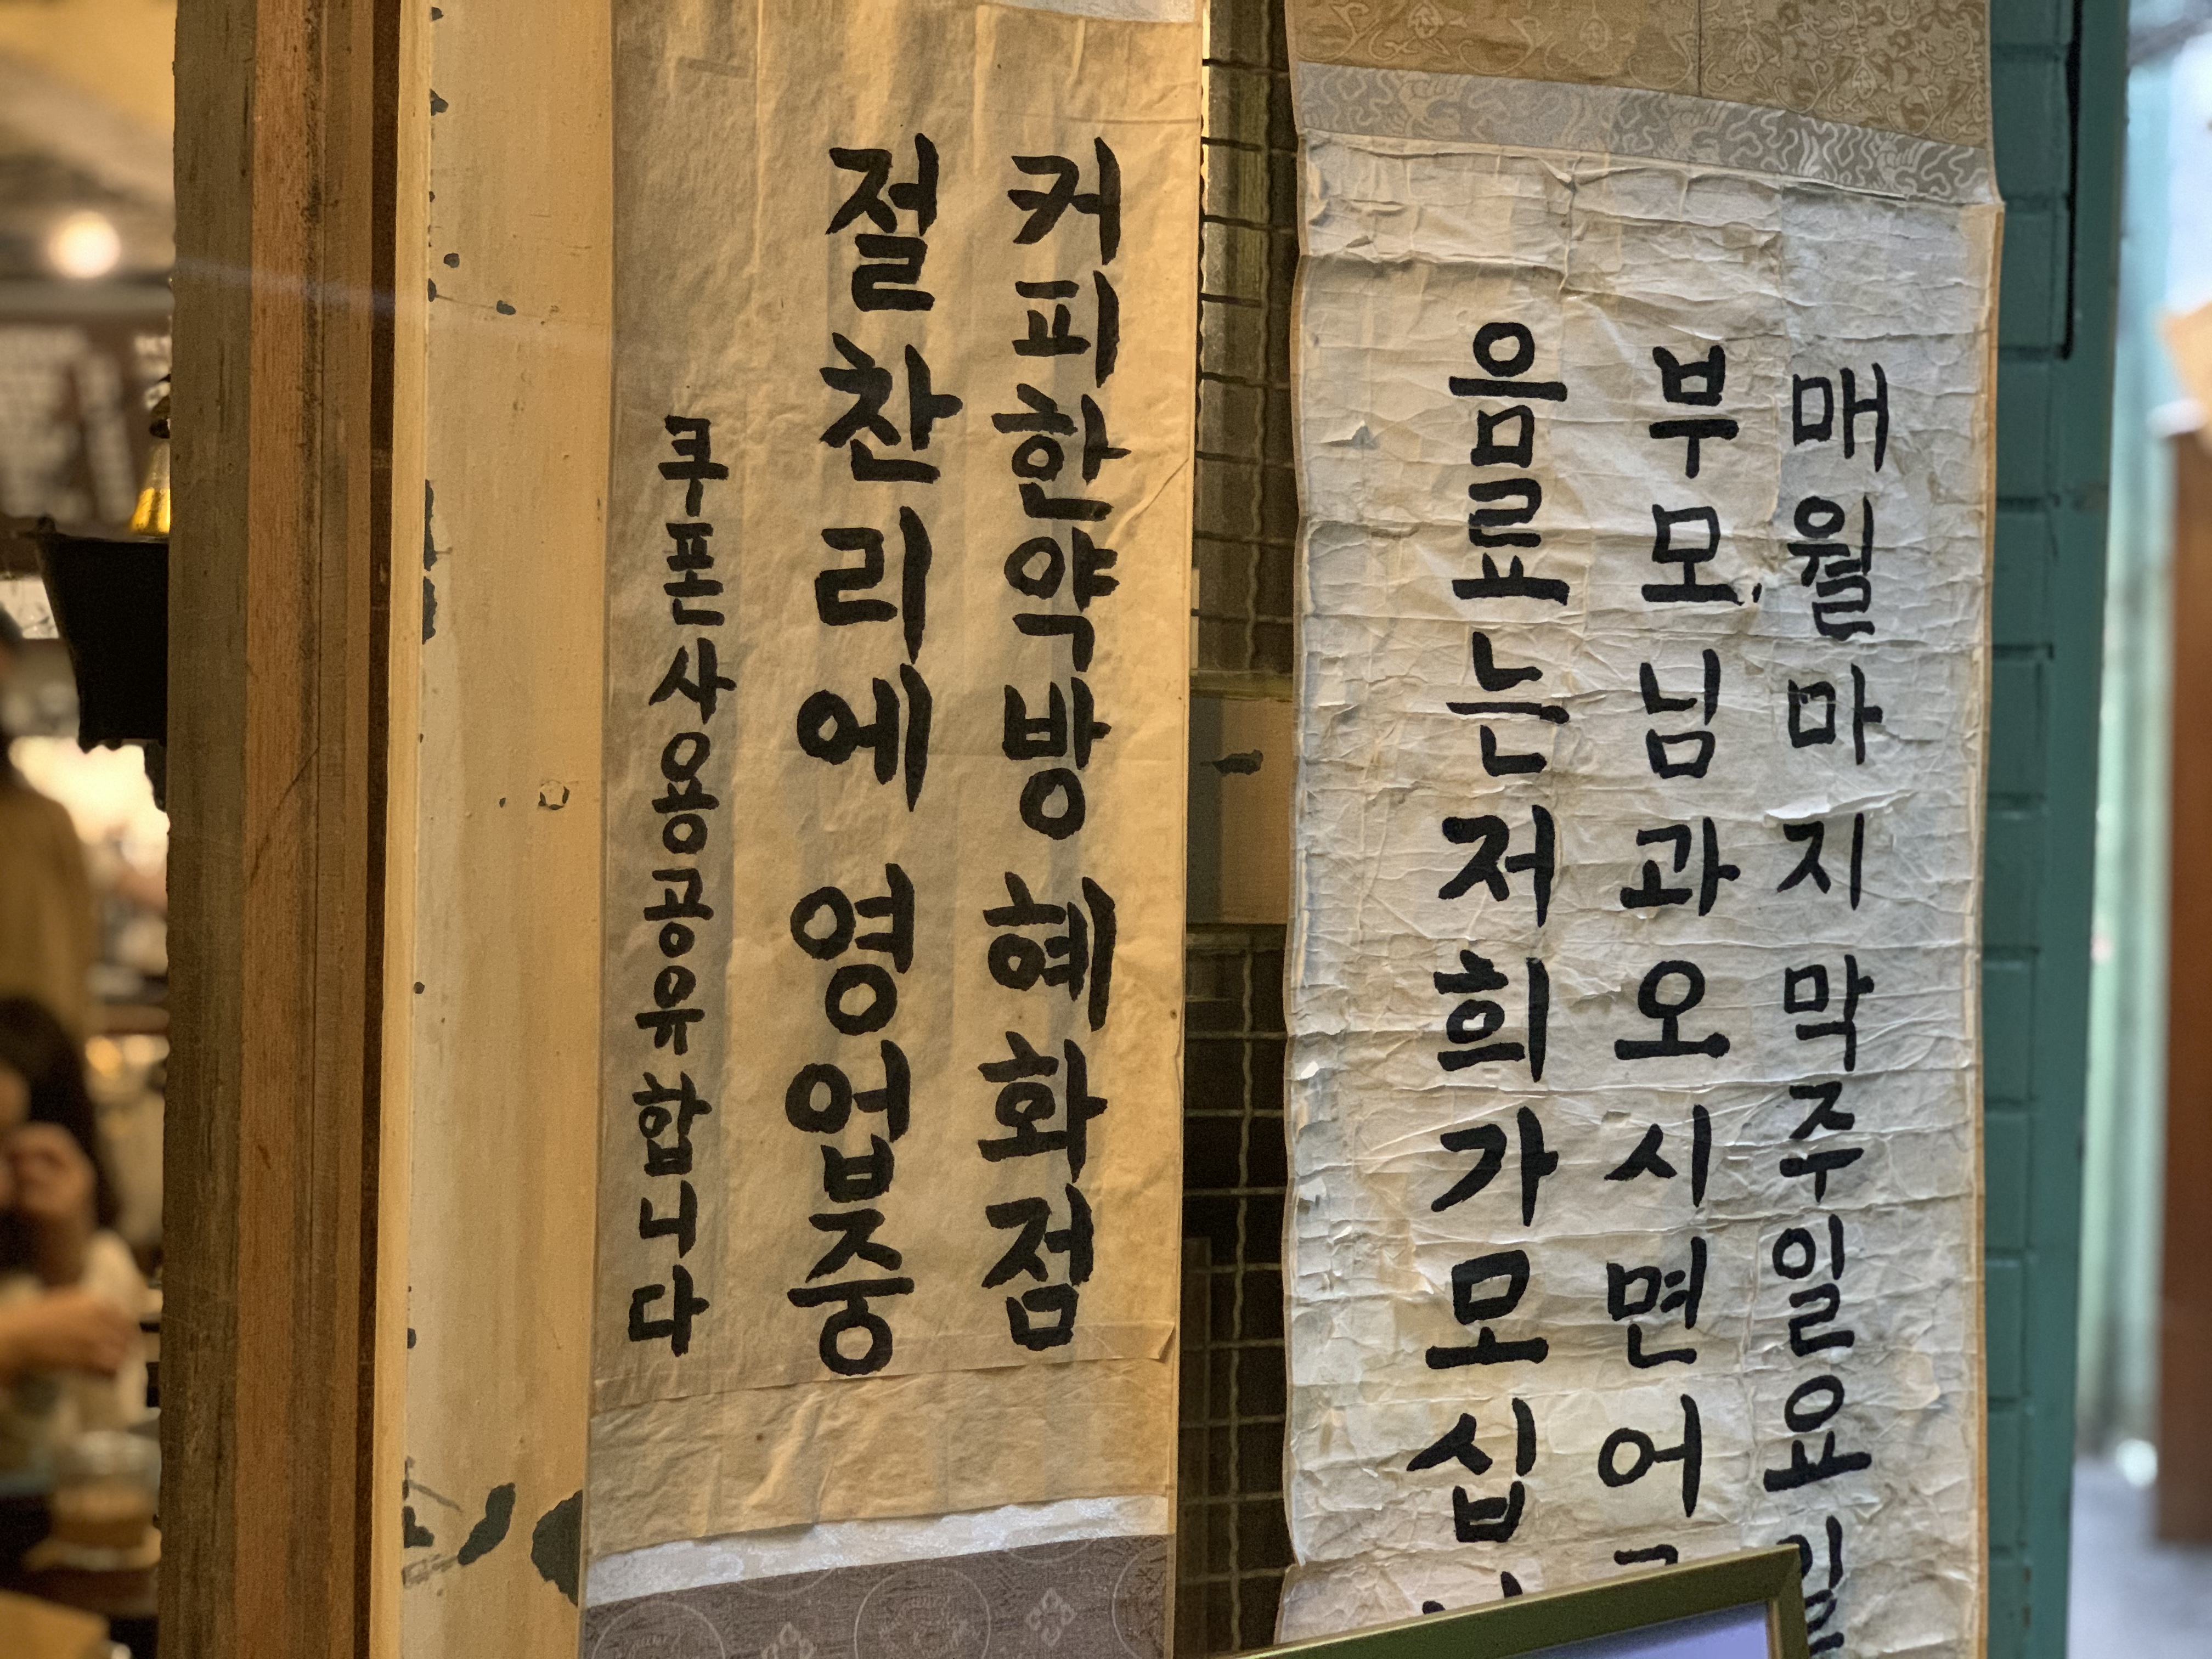 매월마지막주일요일
부모님과오시면어
음료는저희가모십
커피한약방 혜화점
절찬리에 영업중
쿠폰사용공유합니다